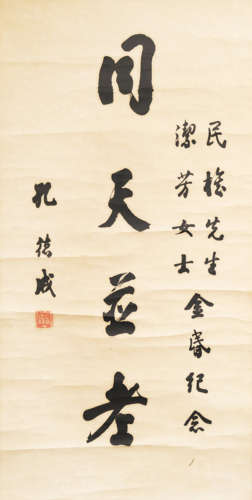 民先生
潔芳女士
金婚紀念
同天並老
孔德成